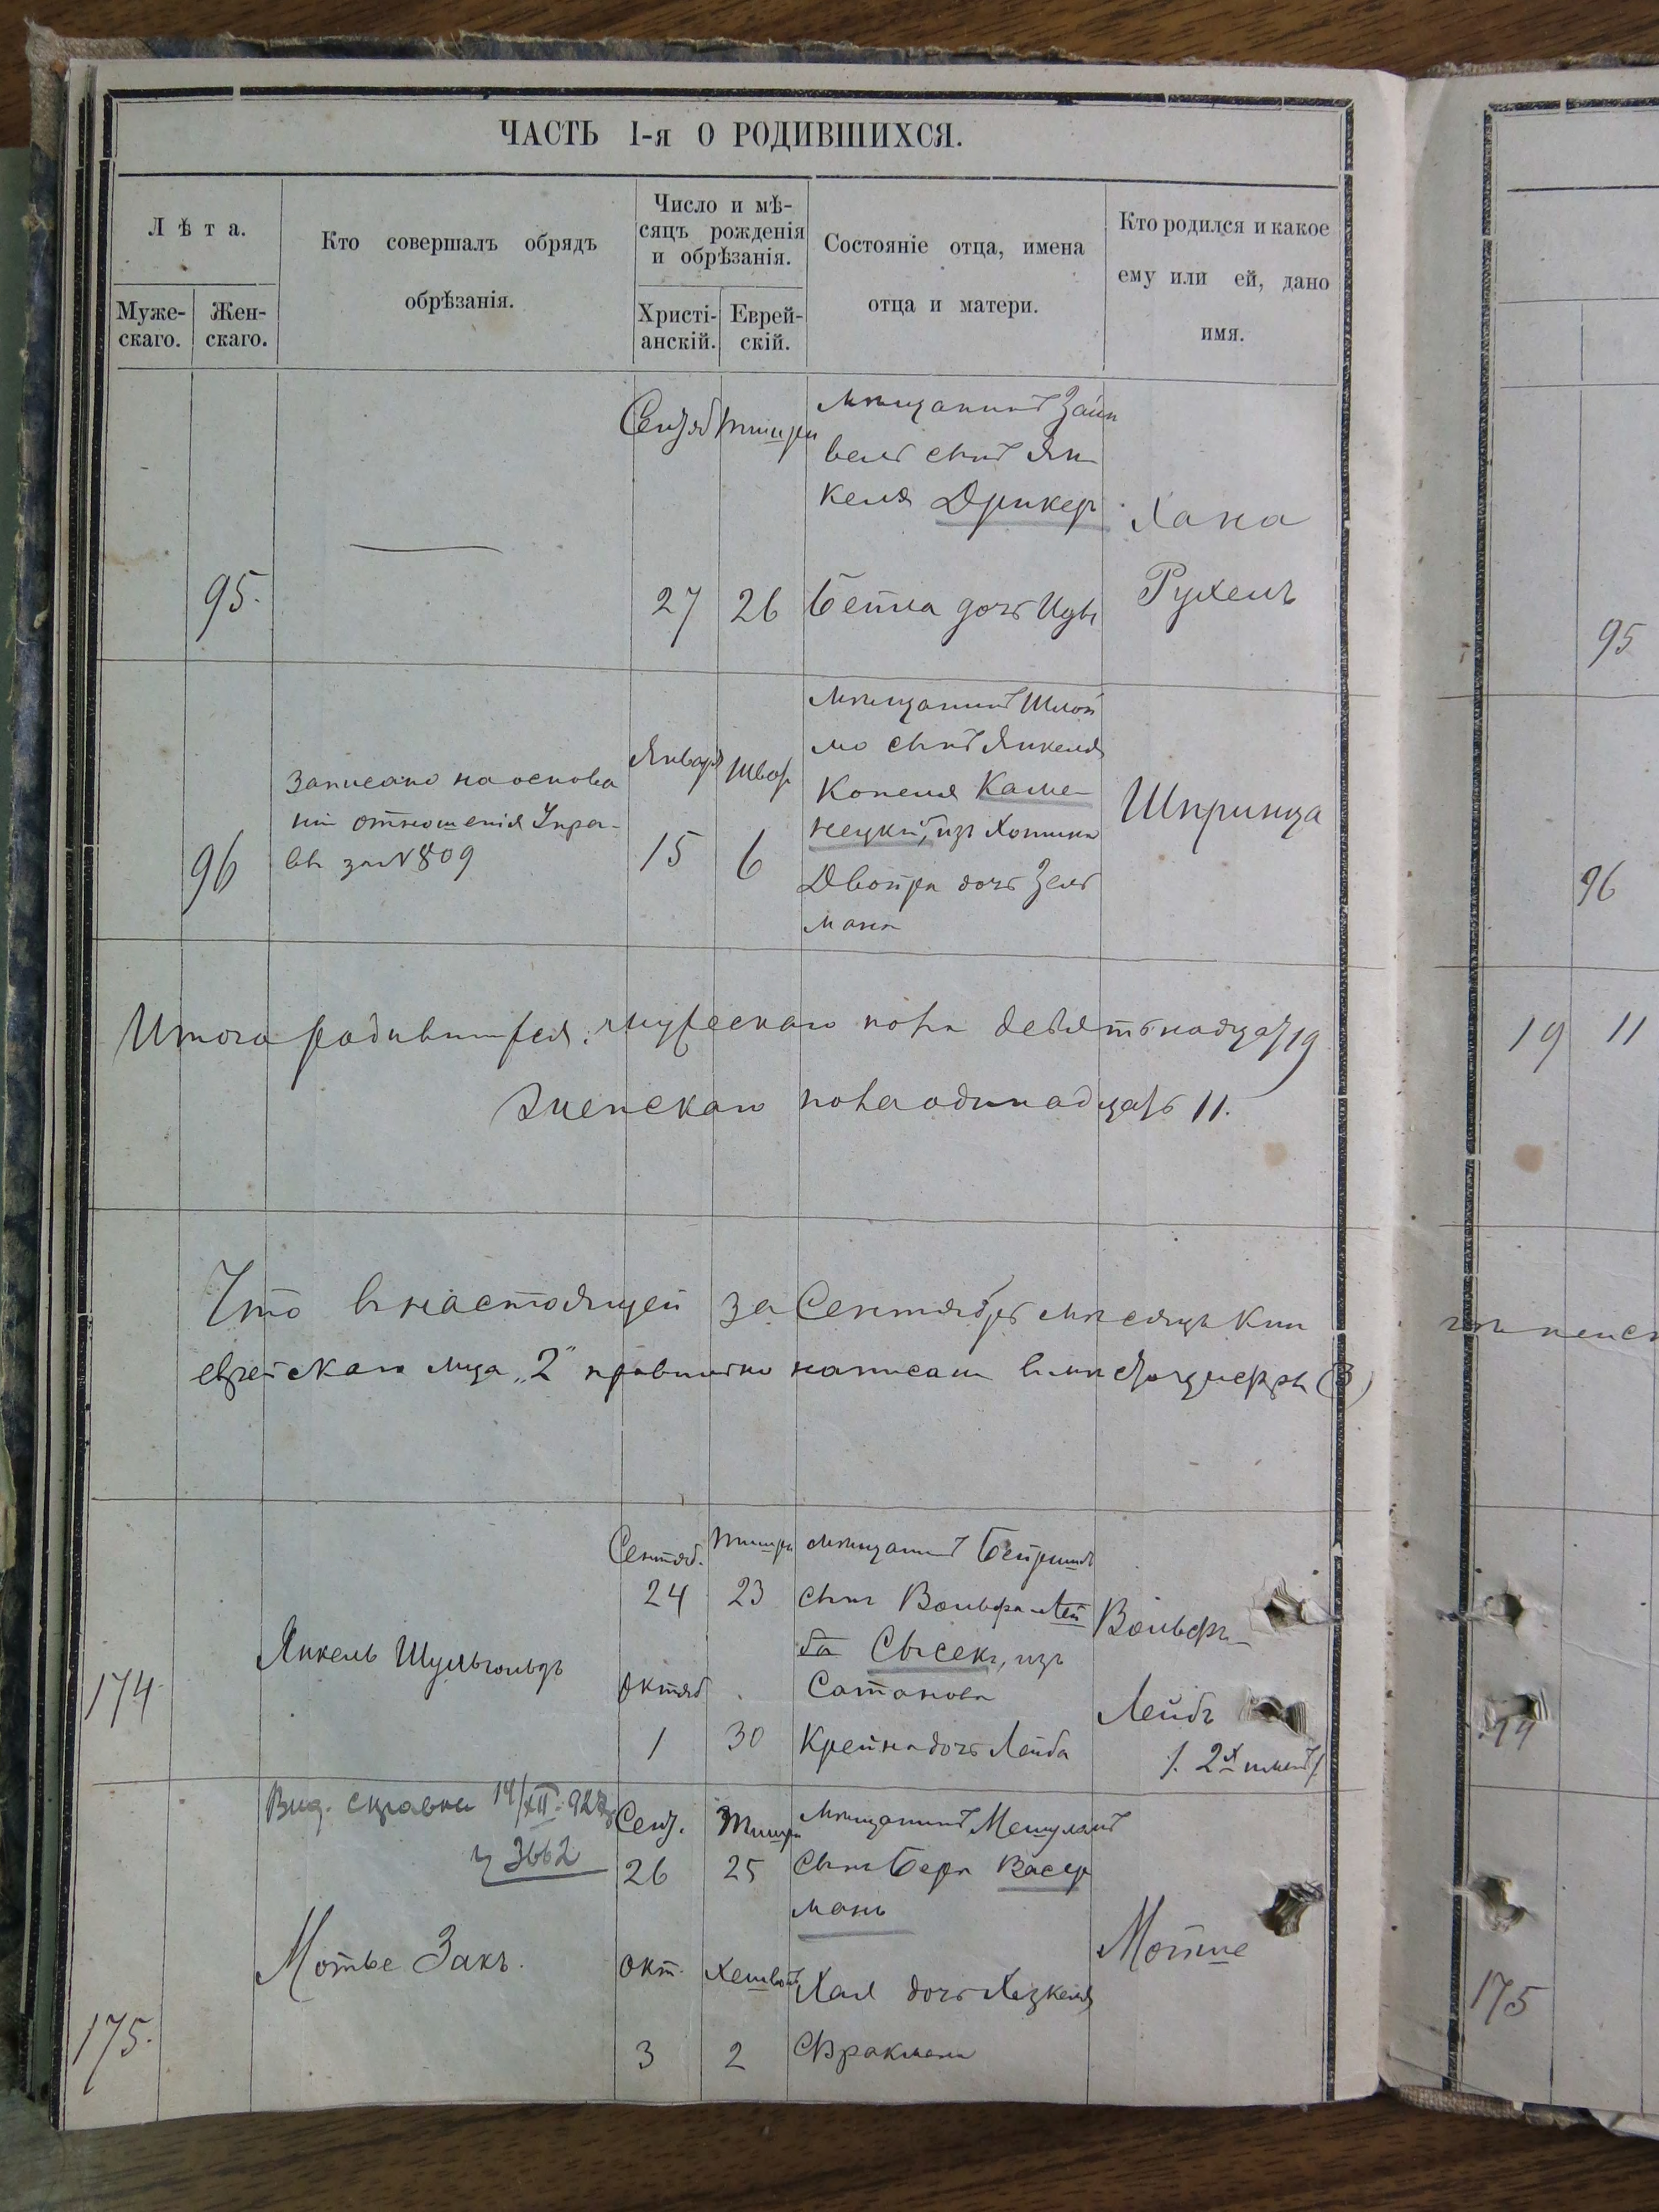 ЧАСТЬ I-я О РОДИВШИХСЯ.
Лѣта.
Муже-
скаго.
Жен-
скаго.
Кто совершалъ обрядъ
обрѣзанія.
Число и мѣ-
сяцъ рожденія
и обрѣзанія.
Христі-
анскій.
Еврей-
скій.
Состояніе отца, имена
отца и матери.
Кто родился и какое
ему или ей, дано
имя.
95.
Сентяб
27
Тишри
26
мѣщанинъ Зайн
вель сынъ Ян
келя Дрикеръ
Бейла дочь Иды
Хана
Рухель
95
96
Записано на основа
ніи отношенія Упра-
вы за № 809
Января
15
Шват
6
Мѣщанинъ Шлой
мо сынъ Янкеля
Копеля Каме-
нецкій, изъ Хотина
Двойра дочь Зель
мана
Шпринца
96
Итого родившихся: мужескаго пола девятьнадцать 19
женскаго пола одинадцать 11.
19 11
Что въ настоящей за Сентябрь мѣсяцъ кни
еврейскаго лица „2" правильно написано вмѣсто цифры (3)
174
Янкель Шульгольдъ
Сентяб.
24
Октяб
1
Тишри
23
30
мѣщанинъ Бейришъ
сынъ Вольфа-Лей
ба Сысекъ, изъ
Сатанова
Крейна дочь Лейба
Вольфъ-
Лейбъ
/. 2х именъ/
Выд. справка 14/XII-927
3662
175.
Мотье Закъ.
Сент.
26
Окт.
3
Тишри
25
Хешвонъ
2
Мѣщанинъ Мешуламъ
сынъ Бера Васер
манъ
Хая дочь Хезкеля
Фракмана
Мотте
175